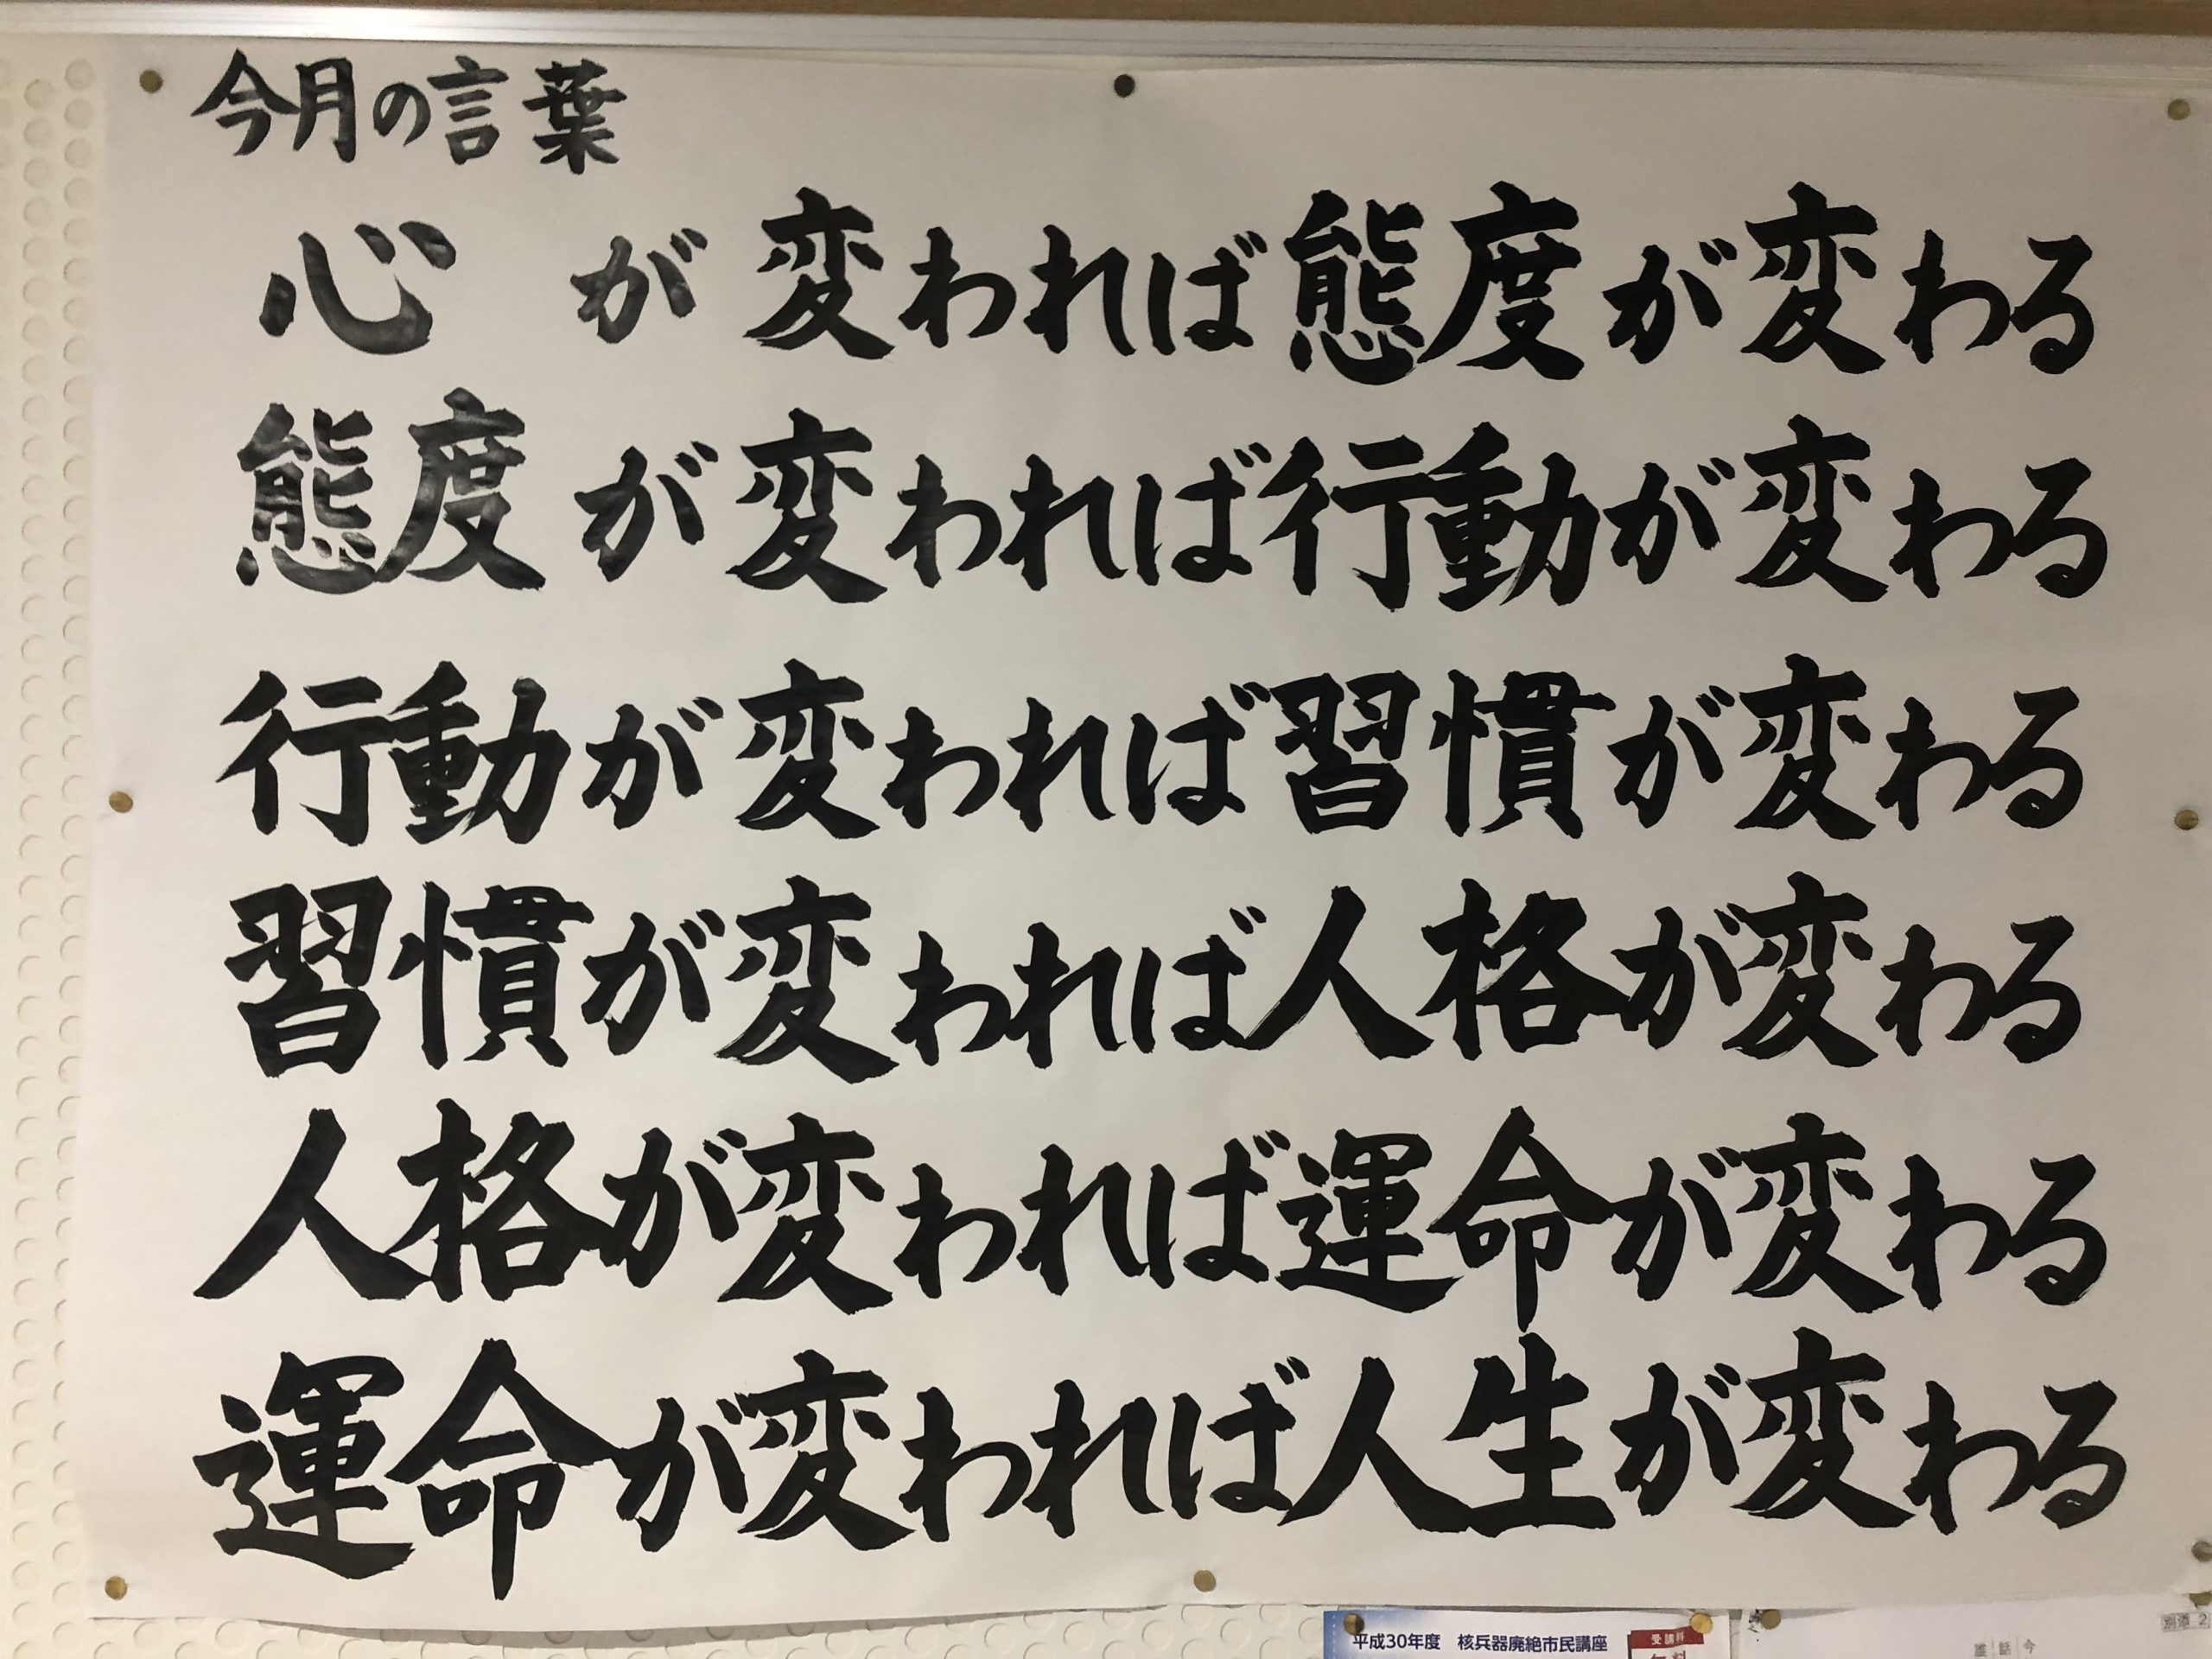 今月の言葉
心が変われば態度が変わる
態度が変われば行動が変わる
行動が変われば習慣が変わる
習慣が変われば人格が変わる
人格が変われば運命が変わる
運命が変われば人生が変わる
平成30年度 核兵器廃絶市民講座
受講料
無料